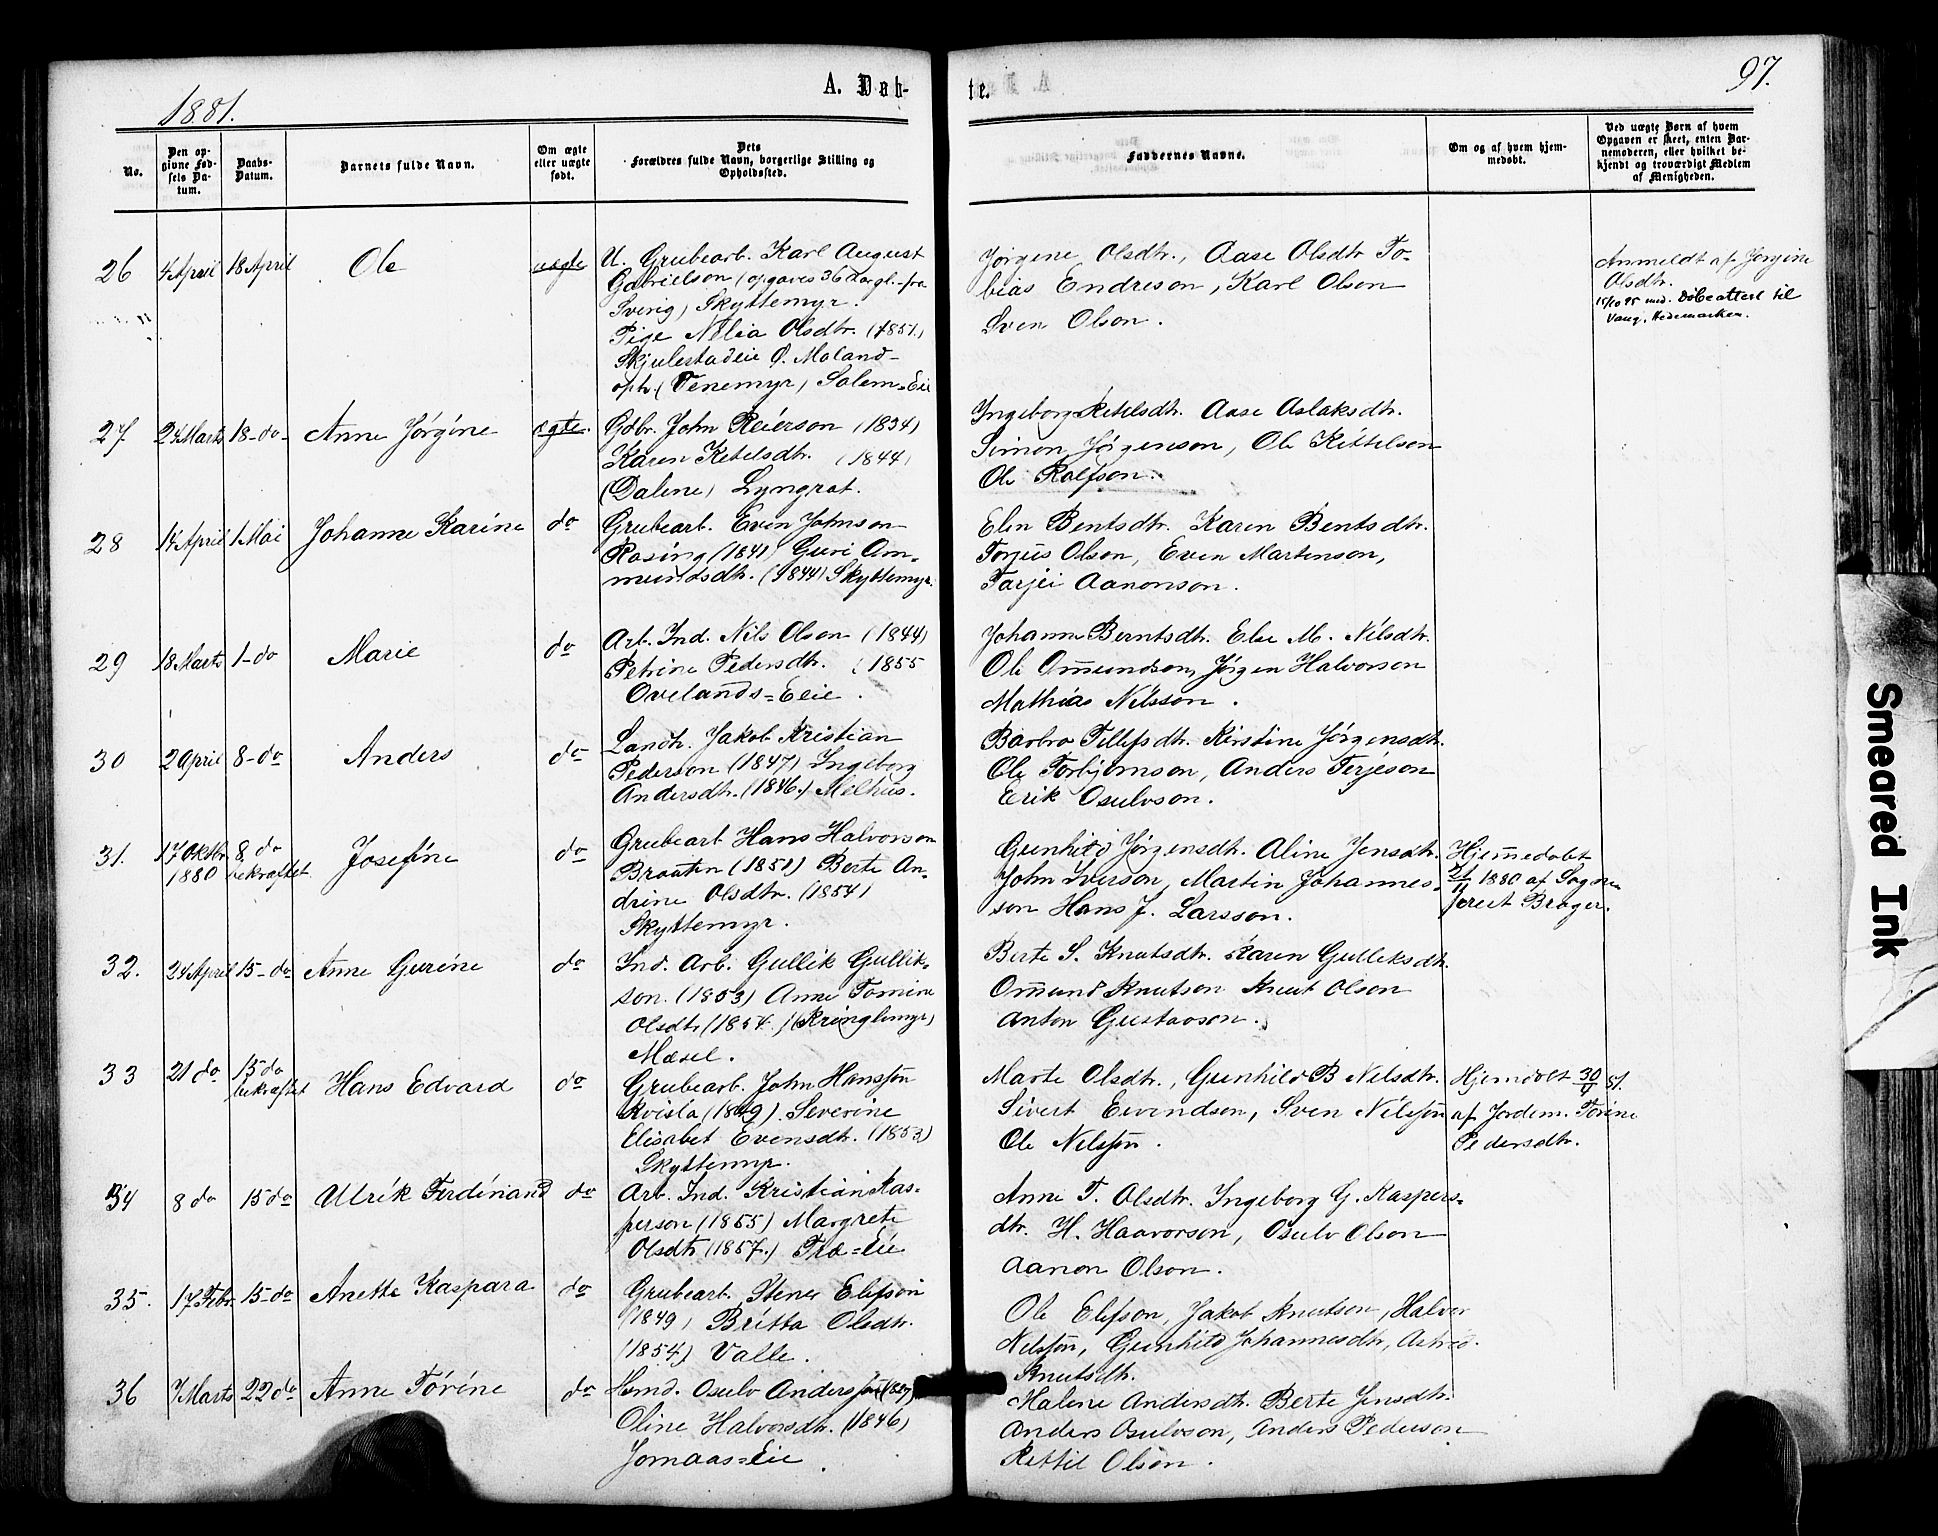 1881.
A. Døb-
te.
97.
No.
Den op-
givne Fød-
sels Da-
tum.
Daabs-
Datum.
Barnets fulde Navn.
Om ægte
eller uægte
født.
Dets
Forældres fulde Navn, borgerlige Stilling og
Opholdssted.
Faddernes Navne.
Om og af hvem hjem-
medøbt.
Ved uægte Børn af hvem
Opgaven er skeet, enten Bar-
nemoderen, eller hvilket be-
kjendt og troværdigt Medlem
af Menigheden.
26 4 April 18 April Ole uægte
U. Grubearb. Karl August
Gabrielson (opgaves 36 Aar gl. fra
Sverig) Skyttemyr.
Pige Nilia Olsdtr. (1851)
Skjulestadeie Ø. Moland-
oph. (Venemyr) Solem-Eie
Jørgene Olsdtr., Aase Olsdtr To-
bias Endreson, Karl Olson
Sven Olson.
Anmeldt af Jørgine
Olsdtr.
15/10 95 med. Døbeattest til
Vang, Hedemarken.
27 24 Marts 18-do- Anne Jørgine ægte.
Gdbr. John Reierson (1834)
Karen Ketelsdtr. (1844)
(Dalene) Lyngrot.
Ingeborg Ketelsdtr. Aase Aslaksdtr.
Simon Jørgenson, Ole Kittelson
Ole Rolfson.
28 14 April 1 Mai Johanne Karine do
Grubearb. Even Johnson
Rosing (1841) Guri Om-
mundsdtr. (1844) Skyttemyr.
Elen Bentsdtr. Karen Bentsdtr.
Torjus Olson, Even Martinson,
Tarjei Aanonson.
29 18 Marts 1-do Marie do
Arb. Ind. Nils Olson (1844)
Petrine Pedersdtr. (1855
Ovelands=Eeie.
Johanne Berntsdtr. Else M. Nilsdtr.
Ole Omundson, Jørgen Halvorson
Mathias Nilsson.
30 2 April 8-do Anders do
Landh. Jakob Kristian
Pederson (1847) Ingeborg
Andersdtr. (1846.) Melhus.
Barbro Tellefsdtr. Kirstine Jørgensdtr.
Ole Torbjørnson, Anders Terjeson
Erik Osulvson.
31. 17 Oktbr 1880 8 do bekræftet Josefine do
Grubearb Hans Halvorson
Braaten (1851) Berte An-
drine Olsdtr. (1854)
Skyttemyr.
Gunhild Jørgensdtr. Aline Jensdtr.
John Iverson, Martin Johannes-
son Hans J. Larsson.
Hjemmedøbt
21/11 1880 af Sogne-
præst Brager.
32. 24 April 15-do Anne Gurine do
Ind. Arb. Gullik Gullik-
son. (1853) Anne Tomine
Olsdtr (1857.) (Kringlemyr)
Mæsel.
Berte S. Knutsdtr. Karen Gulleksdtr.
Omund Knutson Knut Olson
Anton Gustavson.
33 21 do 15 do bekræftet Hans Edvard do
Grubearb. John Hansson
Kvisla (1849). Severine
Elisabet Evensdtr. (1853)
Skyttemyr.
Marte Olsdtr., Gunhild B Nilsdtr.
Sivert Eivindson, Sven Nilsson
Ole Nilsson.
Hjemdøbt 30/4 81.
af Jordem. Torine
Pedersdtr.
34 8 do 15 do Ulrik Ferdinand do
Arb. Ind. Kristian Kas-
person (1855) Margrete
Olsdtr (1857.) Træ=Eie
Anne T. Olsdtr. Ingeborg G. Kaspers-
dtr. H. Haavorson, Osulv Olson
Aanon Olson.
35. 17 Febr. 15-do Anette Kaspara do
Grubearb. Stener Elefson
(1849) Britta Olsdtr.
(1854) Valle.
Ole Elefson, Jakob Knutson, Halvor
Nilsson, Gunhild Johannesdtr, Astrid
Knutsdtr.
36 7 Marts 22 do Anne Torine do
Hsmd. Osulv Andersson
Oline Halvorsdtr. (1846)
Jomaas=Eie.
Malene Andersdtr. Berte Jensdtr.
Anders Osulvson, Anders Pederson
Kittil Olson.
Smeared Ink